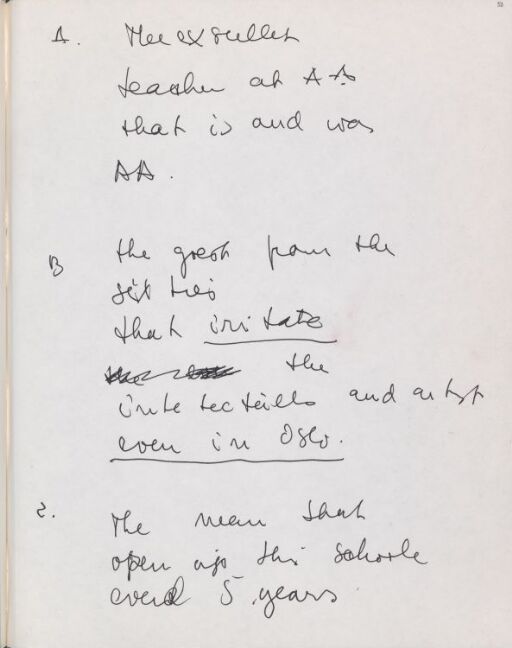 A. The exsellet
teacher at AA
that is and was
AA.
B the great from the
sixties
that iritate
the
intelecteills and artist
even in Oslo.
2. The mean that
open up this schoole
everd 5 years